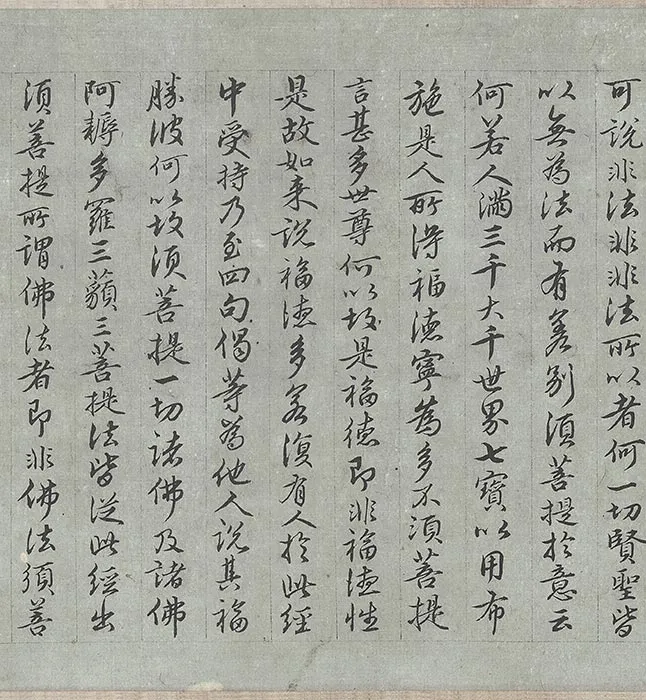 可說非法非非法所以者何一切賢聖皆
以無為法而有差別須菩提於意云
何若人滿三千大千世界七寶以用布
施是人所得福德寧為多不須菩提
言甚多世尊何以故是福德即非福德性
是故如来說福德多若復有人於此經
中受持乃至四句偈等為他人說其福
勝彼何以故須菩提一切諸佛及諸佛
阿耨多羅三藐三菩提法皆從此經出
須菩提所謂佛法者即非佛法須菩